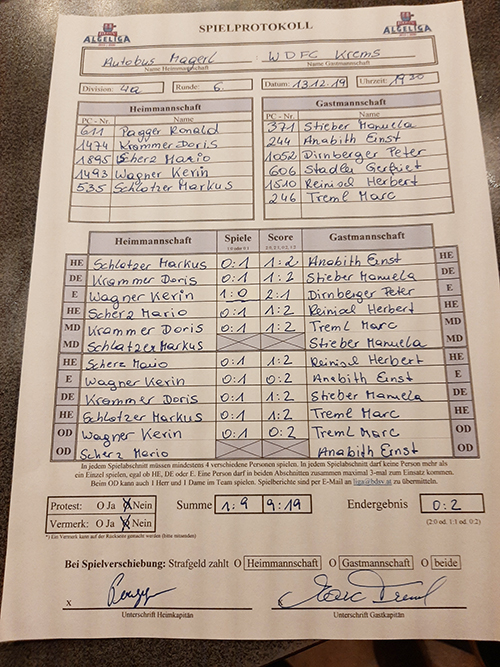 SPIELPROTOKOLL
ALGELIGA ALGELIGA
Autobus Magerl : WDFC Krems
Name Heimmannschaft Name Gastmannschaft
Division: 4a Runde: 6. Datum: 13.12.19 Uhrzeit: 19 30
Heimmannschaft Gastmannschaft
PC - Nr. Name PC - Nr. Name
611 Pagger Ronald 371 Stieber Manuela
1474 Krammer Doris 244 Anabith Ernst
1895 Scherz Mario 1052 Dirnberger Peter
1493 Wagner Kevin 606 Stadler Gerfriet
535 Schlotzer Markus 1510 Reinisd Herbert
246 Treml Marc
Heimmannschaft Spiele Score Gastmannschaft
1:0 oder 0:1 2:0, 2:1, 0:2, 1:2
HE Schlotzer Markus 0:1 1:2 Anabith Ernst HE
DE Krammer Doris 0:1 1:2 Stieber Manuela DE
E Wagner Kevin 1:0 2:1 Dirnberger Peter E
HE Scherz Mario 0:1 1:2 Reinisd Herbert HE
MD Krammer Doris 0:1 1:2 Treml Marc MD
MD Schlatzer Markus Stieber Manuela MD
HE Scherz Mario 0:1 1:2 Reinisd Herbert HE
E Wagner Kevin 0:1 0:2 Anabith Ernst E
DE Krammer Doris 0:1 1:2 Stieber Manuela DE
HE Schlotzer Markus 0:1 1:2 Treml Marc HE
OD Wagner Kevin 0:1 0:2 Treml Marc OD
OD Scherz Mario Anabith Ernst OD
In jedem Spielabschnitt müssen mindestens 4 verschiedene Personen spielen. In jedem Spielabschnitt darf keine Person mehr als
ein Einzel spielen, egal ob HE, DE oder E. Eine Person darf in beiden Abschnitten zusammen maximal 3-mal zum Einsatz kommen.
Beim OD kann auch 1 Herr und 1 Dame im Team spielen. Spielberichte sind per E-Mail an liga@bdsv.at zu übermitteln.
Protest: O Ja O Nein Summe 1:9 9:19 Endergebnis 0:2
Vermerk: O Ja O Nein (2:0 od. 1:1 od. 0:2)
*) Ein Vermerk kann auf der Rückseite gemacht werden (bitte umranden)
Bei Spielverschiebung: Strafgeld zahlt O Heimmannschaft O Gastmannschaft O beide
x Marc Treml
Unterschrift Heimkapitän Unterschrift Gastkapitän